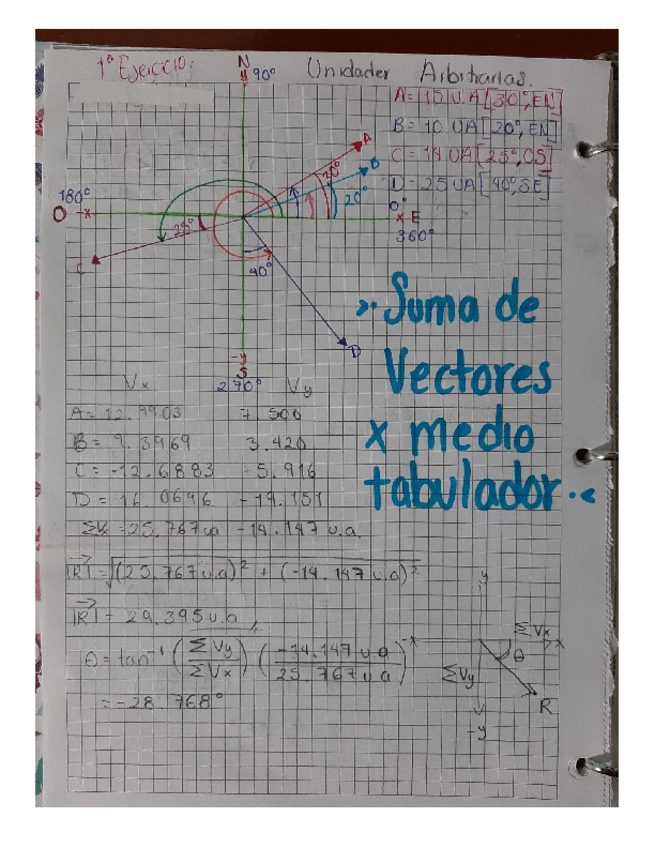 1º Ejercicio:
Unidades Arbitrarias.
N
y 90°
A= 15 U.A [30°, EN]
B= 10 UA [20°, EN]
C= 14 UA [25°, OS]
D= 25 UA [40°, SE]
A
B
30°
20°
180°
O x
0°
x E
360°
25°
C
40°
D
-y
S
270°
>· Suma de
Vectores
x medio
tabulador ·<
Vx Vy
A= 12.9903 7.500
B= 9.3969 3.420
C= -12.6883 -5.916
D= 16.0696 -19.151
ΣVx =25.767ua -14.147 u.a.
|R|=√(25.767u.a)² + (-14.147u.a)²
|R|= 29.395u.a
θ=tan⁻¹ (ΣVy/ΣVx) (-14.147 u.a/25.767u.a)
=-28.768°
y
-x
ΣVx
x
θ
ΣVy
R
-y